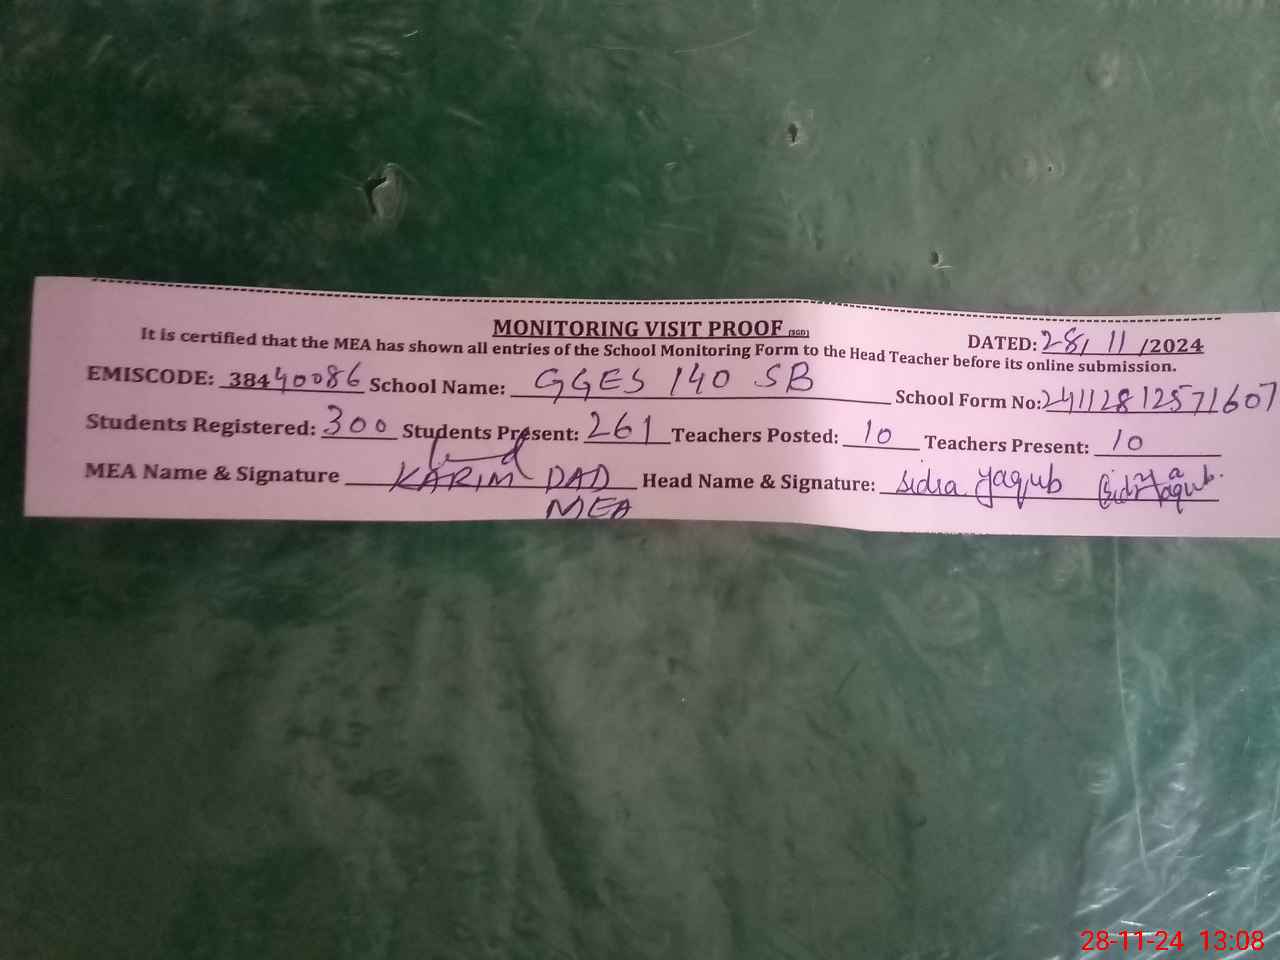 MONITORING VISIT PROOF (SGD)
DATED: 28/11/2024
It is certified that the MEA has shown all entries of the School Monitoring Form to the Head Teacher before its online submission.
EMISCODE: 38440086 School Name: GGES 140 SB School Form No: 24112812571607
Students Registered: 300 Students Present: 261 Teachers Posted: 10 Teachers Present: 10
MEA Name & Signature KARIM DAD Head Name & Signature: Sidra Yaqub Sidra Yaqub.
MEA
28-11-24 13:08